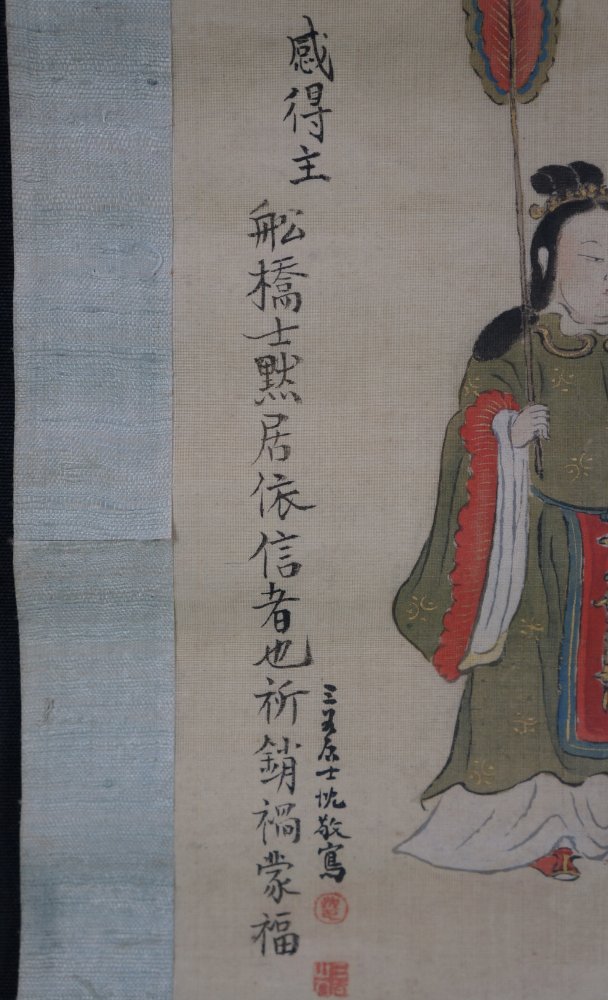 感得主
舩橋士黙居依信者也祈銷禍蒙福
三居士敬寫